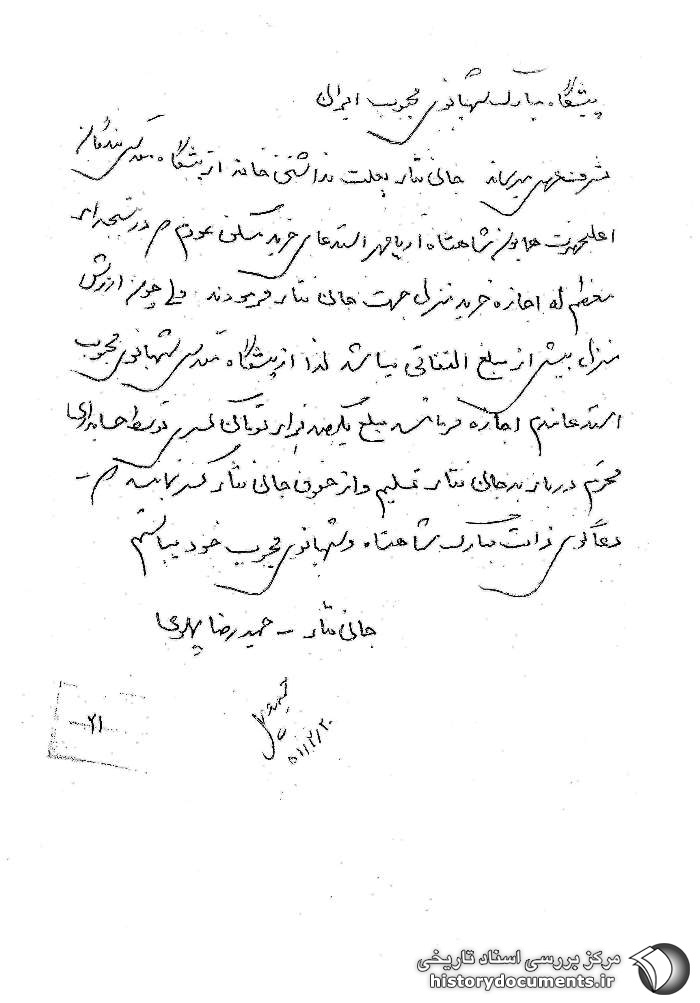 پیشگاه مبارک شهبانوی محبوب ایران
شرفعرض میرساند جان نثار بعلت نداشتن خانه از پیشگاه مقدس بندگان
اعلیحضرت همایون شاهنشاه آریامهر استدعای خرید مسکن نمودم در نتیجه
معظم له اجازه خرید منزل جهت جان نثار فرمودند ولی چون ارزش
منزل بیش از مبلغ التفاتی میباشد لذا از پیشگاه مقدس شهبانوی محبوب
استدعا دارم اجازه فرمائید مبلغ یکصد هزار تومان توسط حسابداری
محترم دربار بجان نثار تسلیم و از حقوق جان نثار کسر نمایند
دعاگوی ذات مبارک شاهنشاه و شهبانوی محبوب خود میباشم
جان نثار - حمیدرضا پهلوی
۵۱/۲/۲۰
۲۱
مرکز بررسی اسناد تاریخی
historydocuments.ir